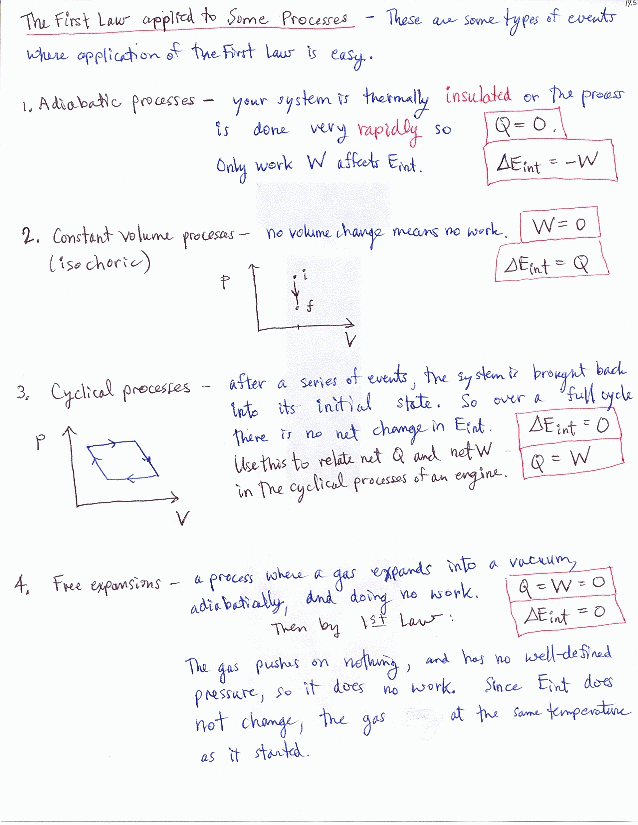 19.5
The First Law applied to Some Processes – These are some types of events
where application of the First Law is easy.
1. Adiabatic processes – your system is thermally insulated or the process
is done very rapidly so Q = 0.
Only work W affects Eint. ΔEint = -W
2. Constant volume processes – no volume change means no work. W = 0
(isochoric) ΔEint = Q
P i
f
V
3. Cyclical processes – after a series of events, the system is brought back
into its initial state. So over a full cycle
there is no net change in Eint. ΔEint = 0
Use this to relate net Q and net W Q = W
in the cyclical processes of an engine.
P
V
4. Free expansions – a process where a gas expands into a vacuum,
adiabatically, and doing no work. Q = W = 0
Then by 1st Law: ΔEint = 0
The gas pushes on nothing, and has no well-defined
pressure, so it does no work. Since Eint does
not change, the gas at the same temperature
as it started.